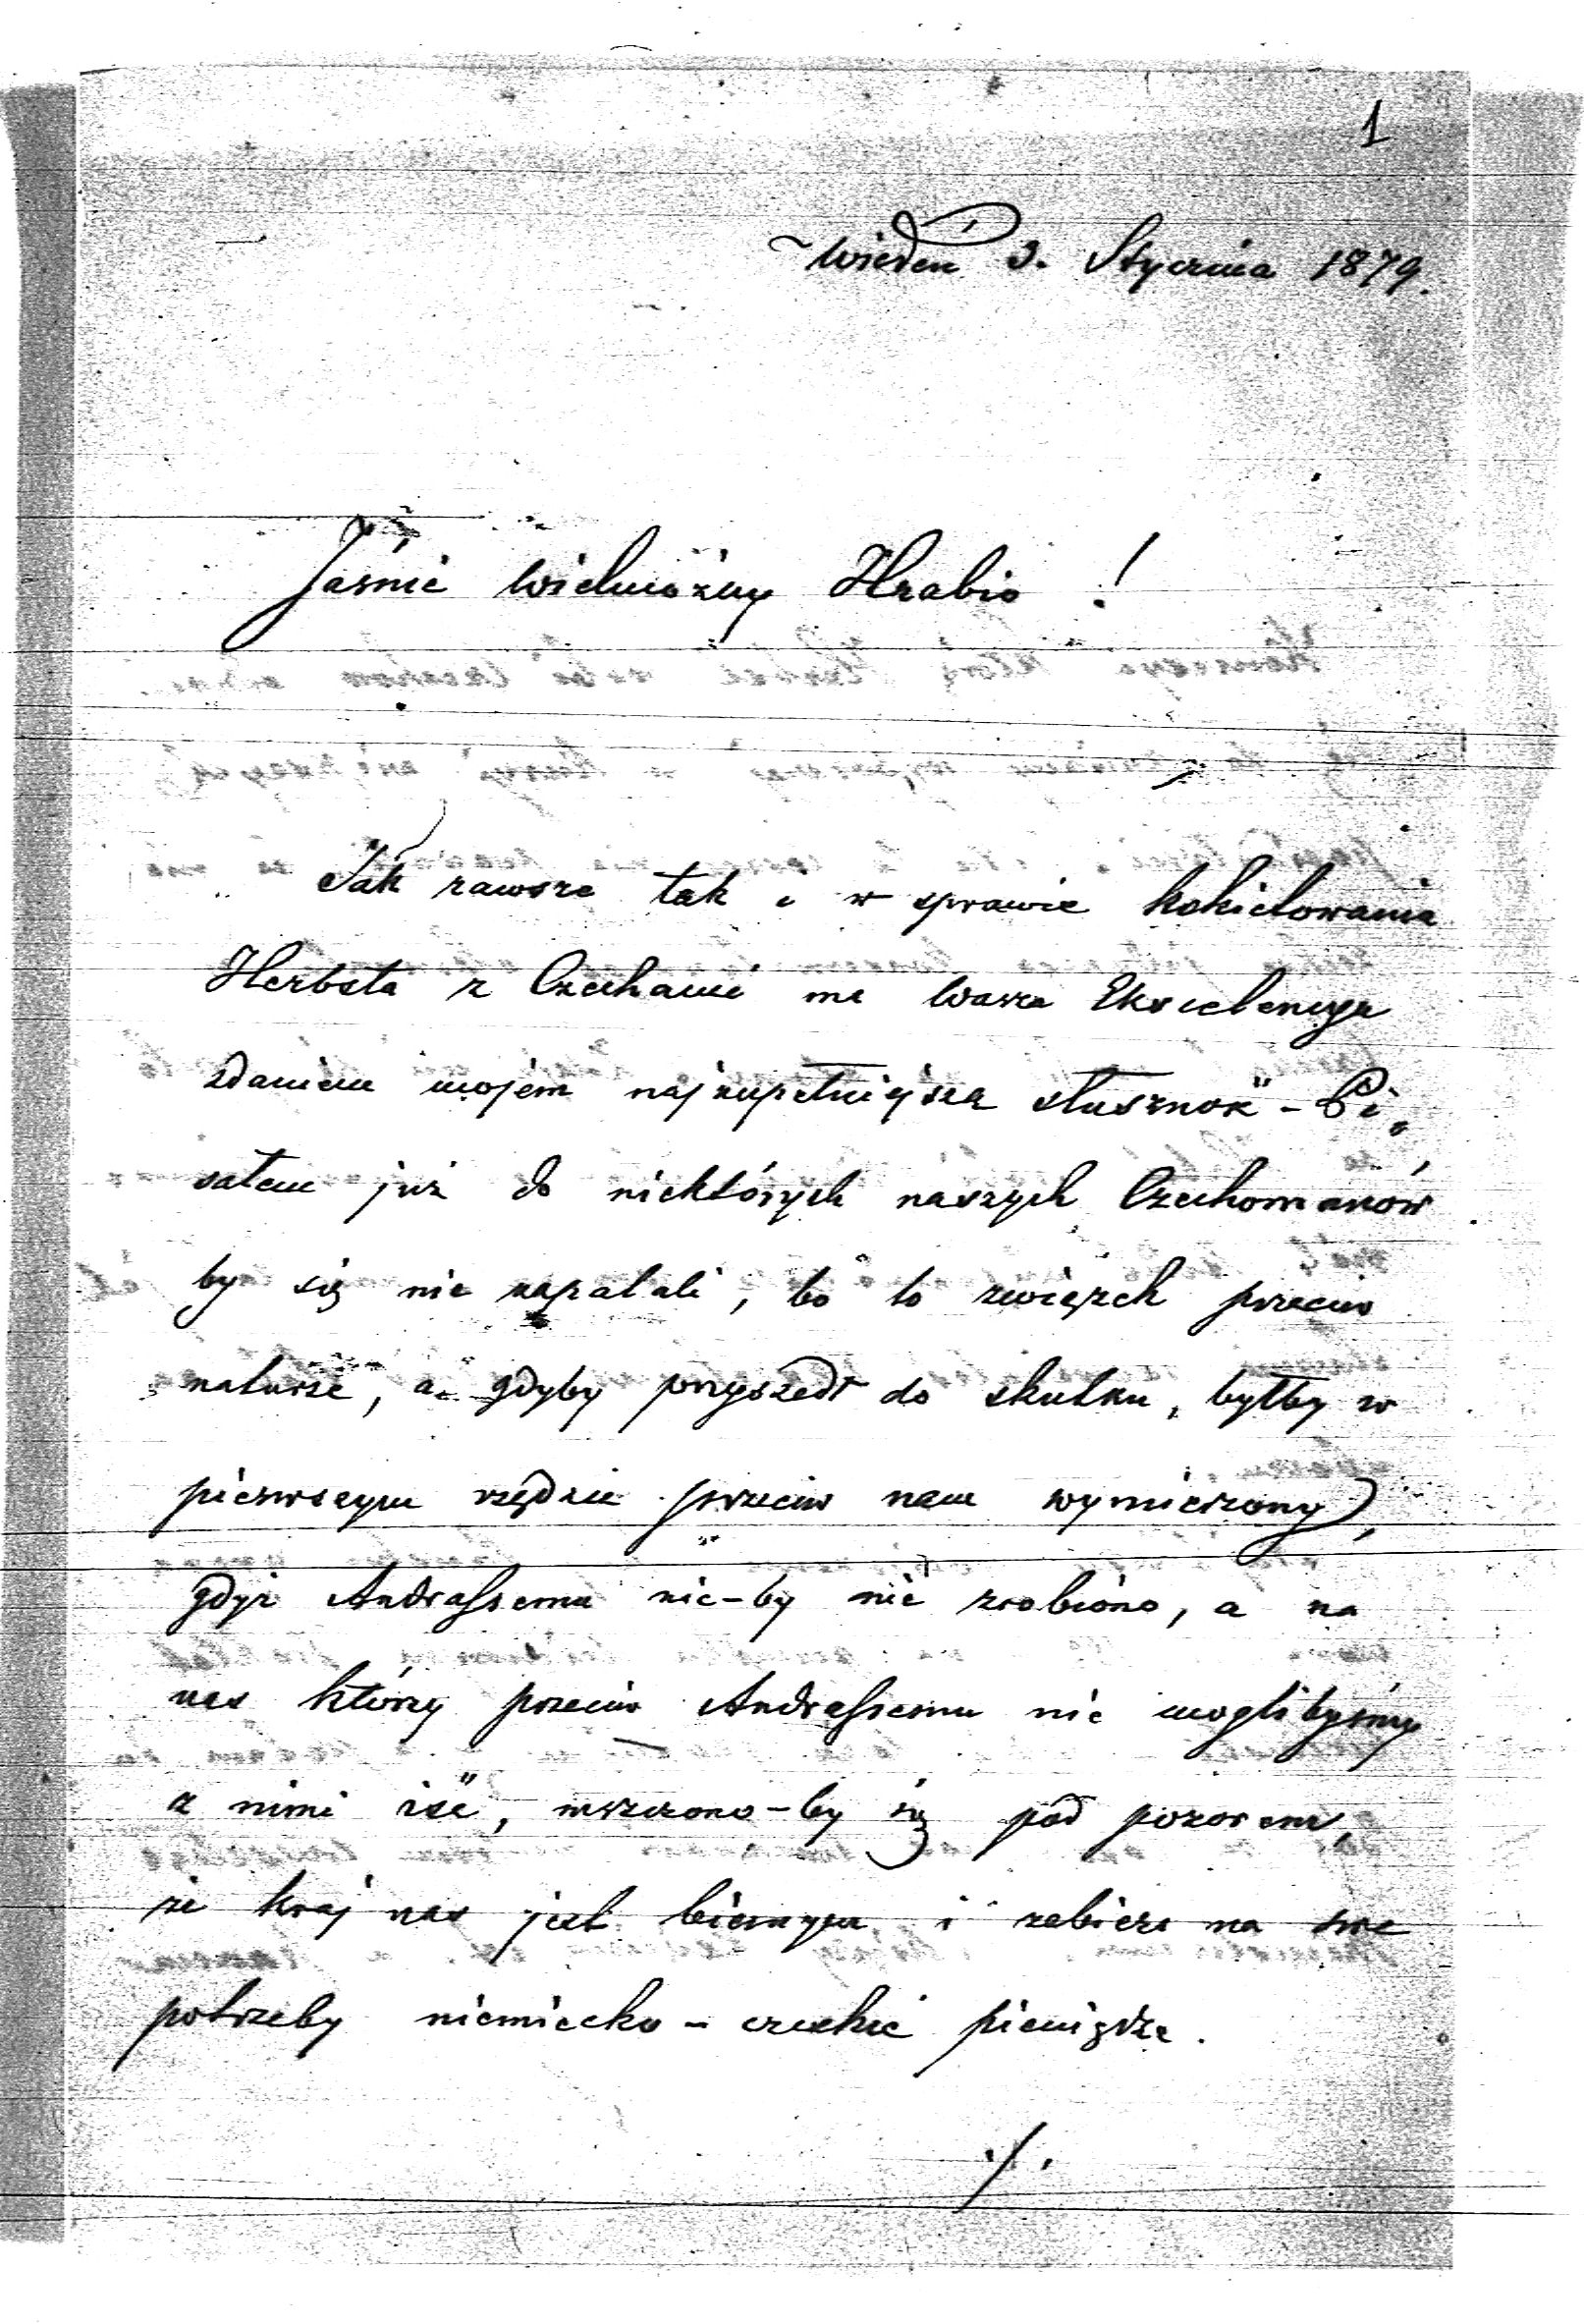 1
Wiedeń 3. Stycznia 1879.
Jaśnie Wielmożny Hrabio !
Jak zawsze tak i w sprawie kokietowania
Herbsta z Czechami ma Wasza Ekscelencya
zdaniem mojem najzupełniejszą słuszność - Pi„
sałem już do niektórych naszych Czechomanów
by się nie zapalali, bo to związek przeciw
naturze, a gdyby przyszedł do skutku, byłby w
pierwszym rzędzie przeciw nam wymierzony,
gdyż Andrassemu nic-by nie zrobiono, a na
nas którzy przeciw Andrassemu nie moglibyśmy
z nimi iść, mszczono-by się pod pozorem,
że kraj nas jest biernym i zabiera na swe
potrzeby niemiecko - czeskie pieniądze.
./.